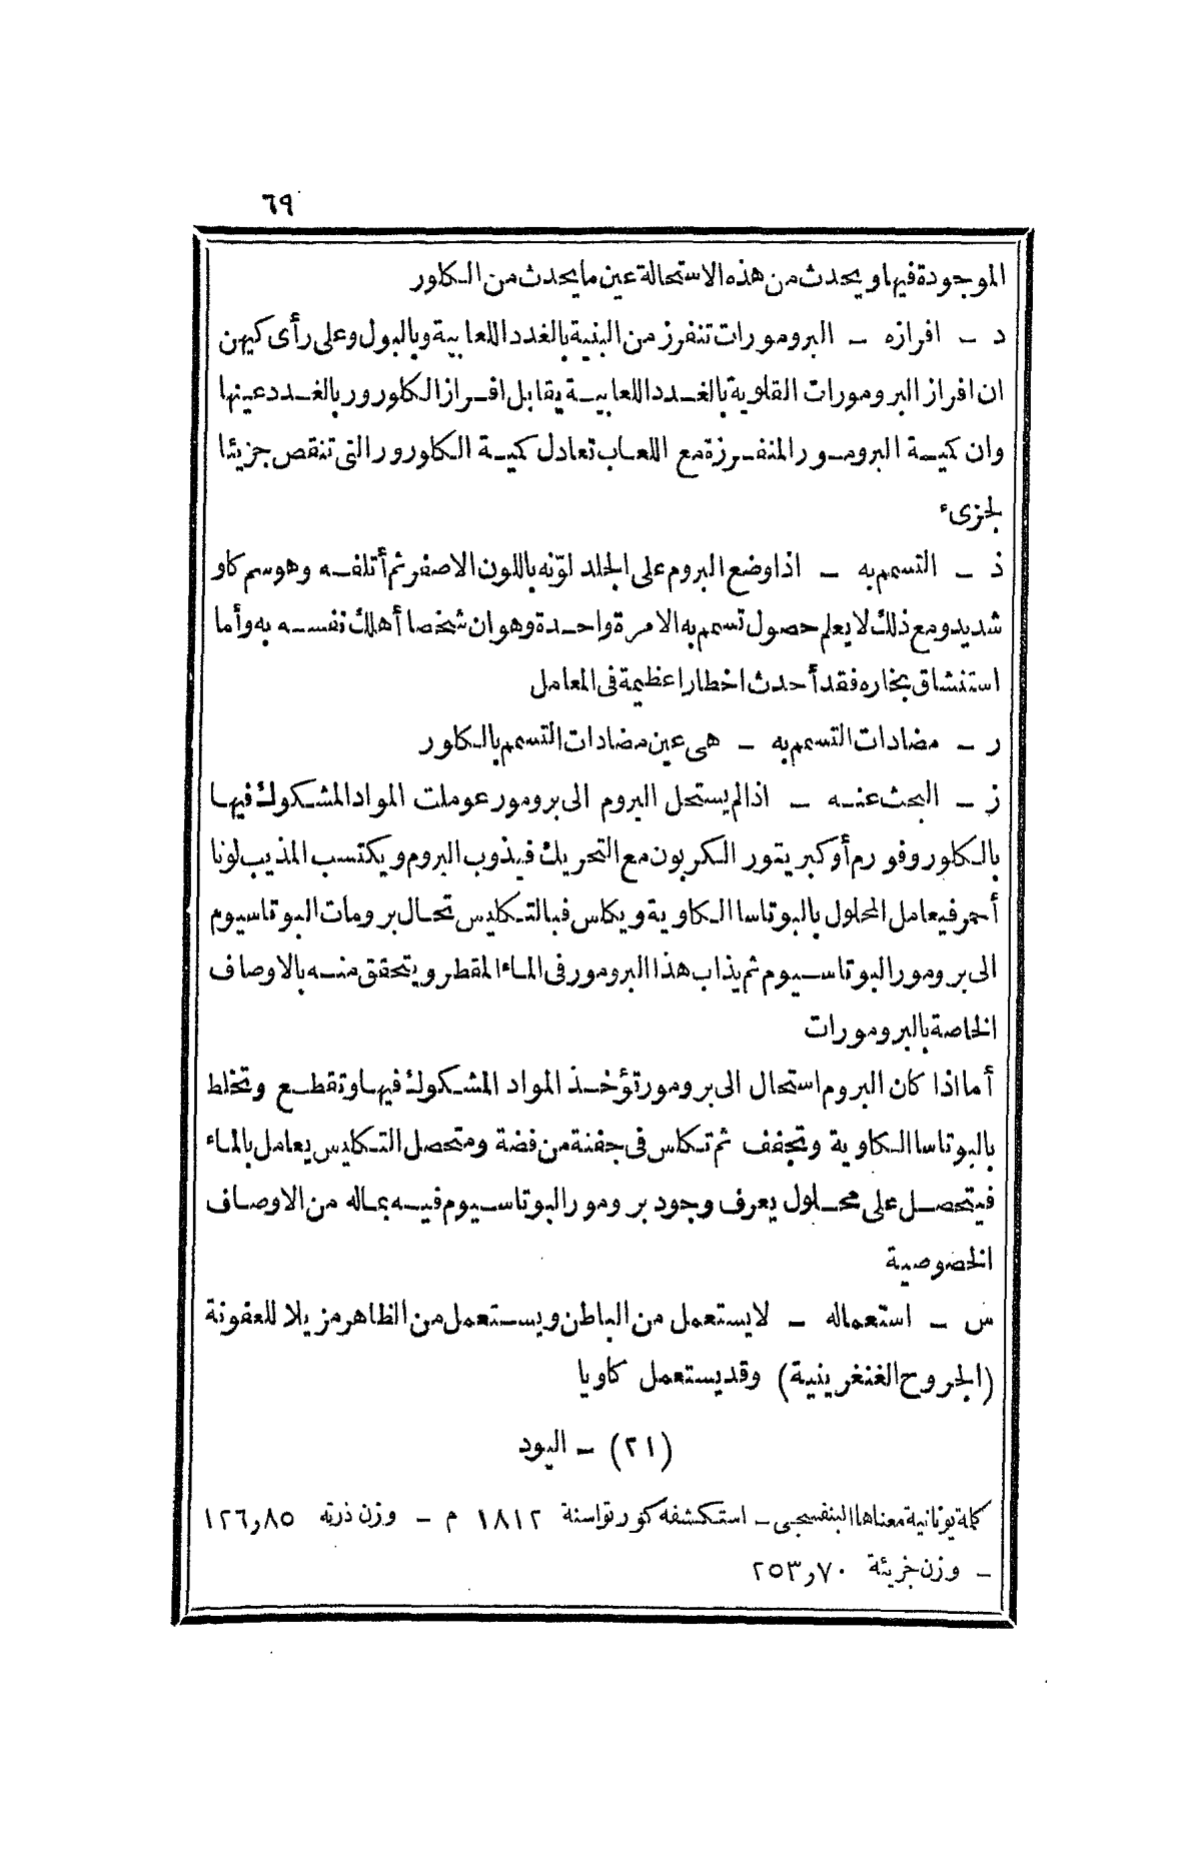 ٦٩
الموجودة فيها ويحدث من هذه الاستحالة عين ما يحدث من الكلور
د – افرازه – البرومورات تنفرز من البنية بالغدد اللعابية وبالبول وعلى رأى كيهن
ان افراز البرومورات القلوية بالغدد اللعابية يقابل افراز الكلورور بالغدد عينها
وان كمية البرومور المنفرزة مع اللعاب تعادل كمية الكلورور التى تنقص جزيئا
لجزىء
ذ – التسمم به – اذا وضع البروم على الجلد لوّنه باللون الاصفر ثم أتلفه وهو سم كاو
شديد ومع ذلك لا يعلم حصول تسمم به الا مرة واحدة وهو ان شخصا أهلك نفسه به وأما
استنشاق بخاره فقد أحدث اخطارا عظيمة فى المعامل
ر – مضادات التسمم به – هى عين مضادات التسمم بالكلور
ز – البحث عنه – اذا لم يستحل البروم الى برومور عوملت المواد المشكوك فيها
بالكلوروفورم أو كبريتور الكربون مع التحريك فيذوب البروم ويكتسب المذيب لونا
أحمر فيعامل المحلول بالبوتاسا الكاوية ويكاس فبالتكليس تحال برومات البوتاسيوم
الى برومور البوتاسيوم ثم يذاب هذا البرومور فى الماء المقطر ويتحقق منه بالاوصاف
الخاصة بالبرومورات
أما اذا كان البروم استحال الى برومور تؤخذ المواد المشكوك فيها وتقطع وتخلط
بالبوتاسا الكاوية وتجفف ثم تكاس فى جفنة من فضة ومتحصل التكليس يعامل بالماء
فيتحصل على محلول يعرف وجود برومور البوتاسيوم فيه بماله من الاوصاف
الخصوصية
س – استعماله – لا يستعمل من الباطن ويستعمل من الظاهر مزيلا للعفونة
(الجروح الغنغرينية) وقد يستعمل كاويا
(٢١) – اليود
كلمة يونانية معناها البنفسجى – استكشفه كورتوا سنة ١٨١٢ م – وزن ذرته ١٢٦٫٨٥
– وزن جزيئة ٢٥٣٫٧٠